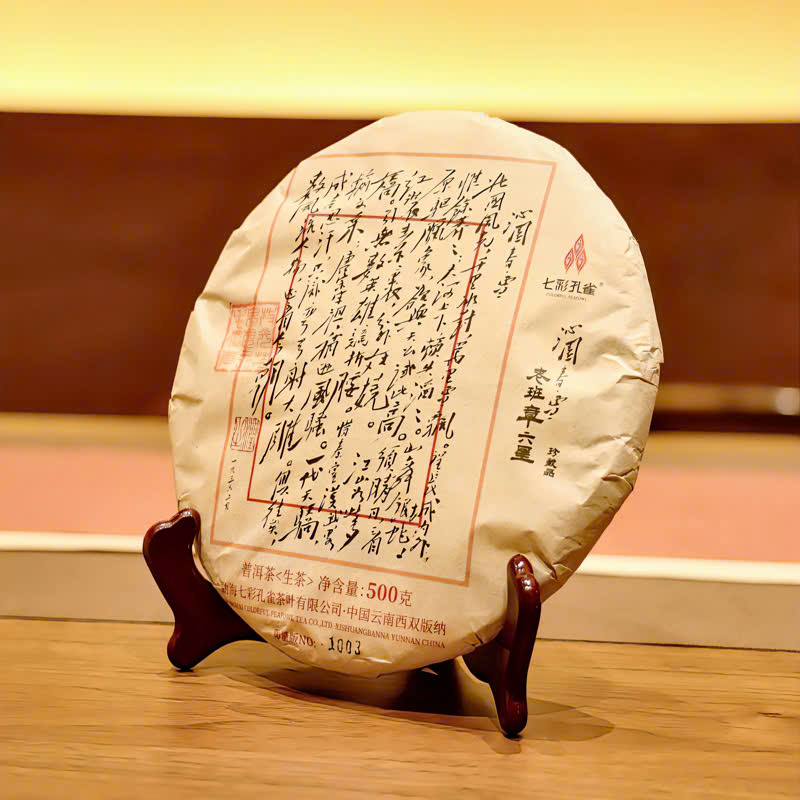 沁园春雪
北国风光,千里冰封,万里雪飘。望长城内外,
惟馀莽莽;大河上下,顿失滔滔。山舞银蛇,
原驰蜡象,欲与天公试比高。须晴日,看
红装素裹,分外妖娆。江山如此多
娇,引无数英雄竞折腰。惜秦皇汉武,略
输文采;唐宗宋祖,稍逊风骚。一代天骄,
成吉思汗,只识弯弓射大雕。俱往矣,
数风流人物,还看今朝。
七彩孔雀®
COLORFUL PEAFOWL
沁园春雪
老班章六星
珍藏品
普洱茶<生茶> 净含量:500克
勐海七彩孔雀茶叶有限公司·中国云南西双版纳
COLORFUL PEAFOWL TEA CO.,LTD. XISHUANGBANNA YUNNAN CHINA
版NO: 1003